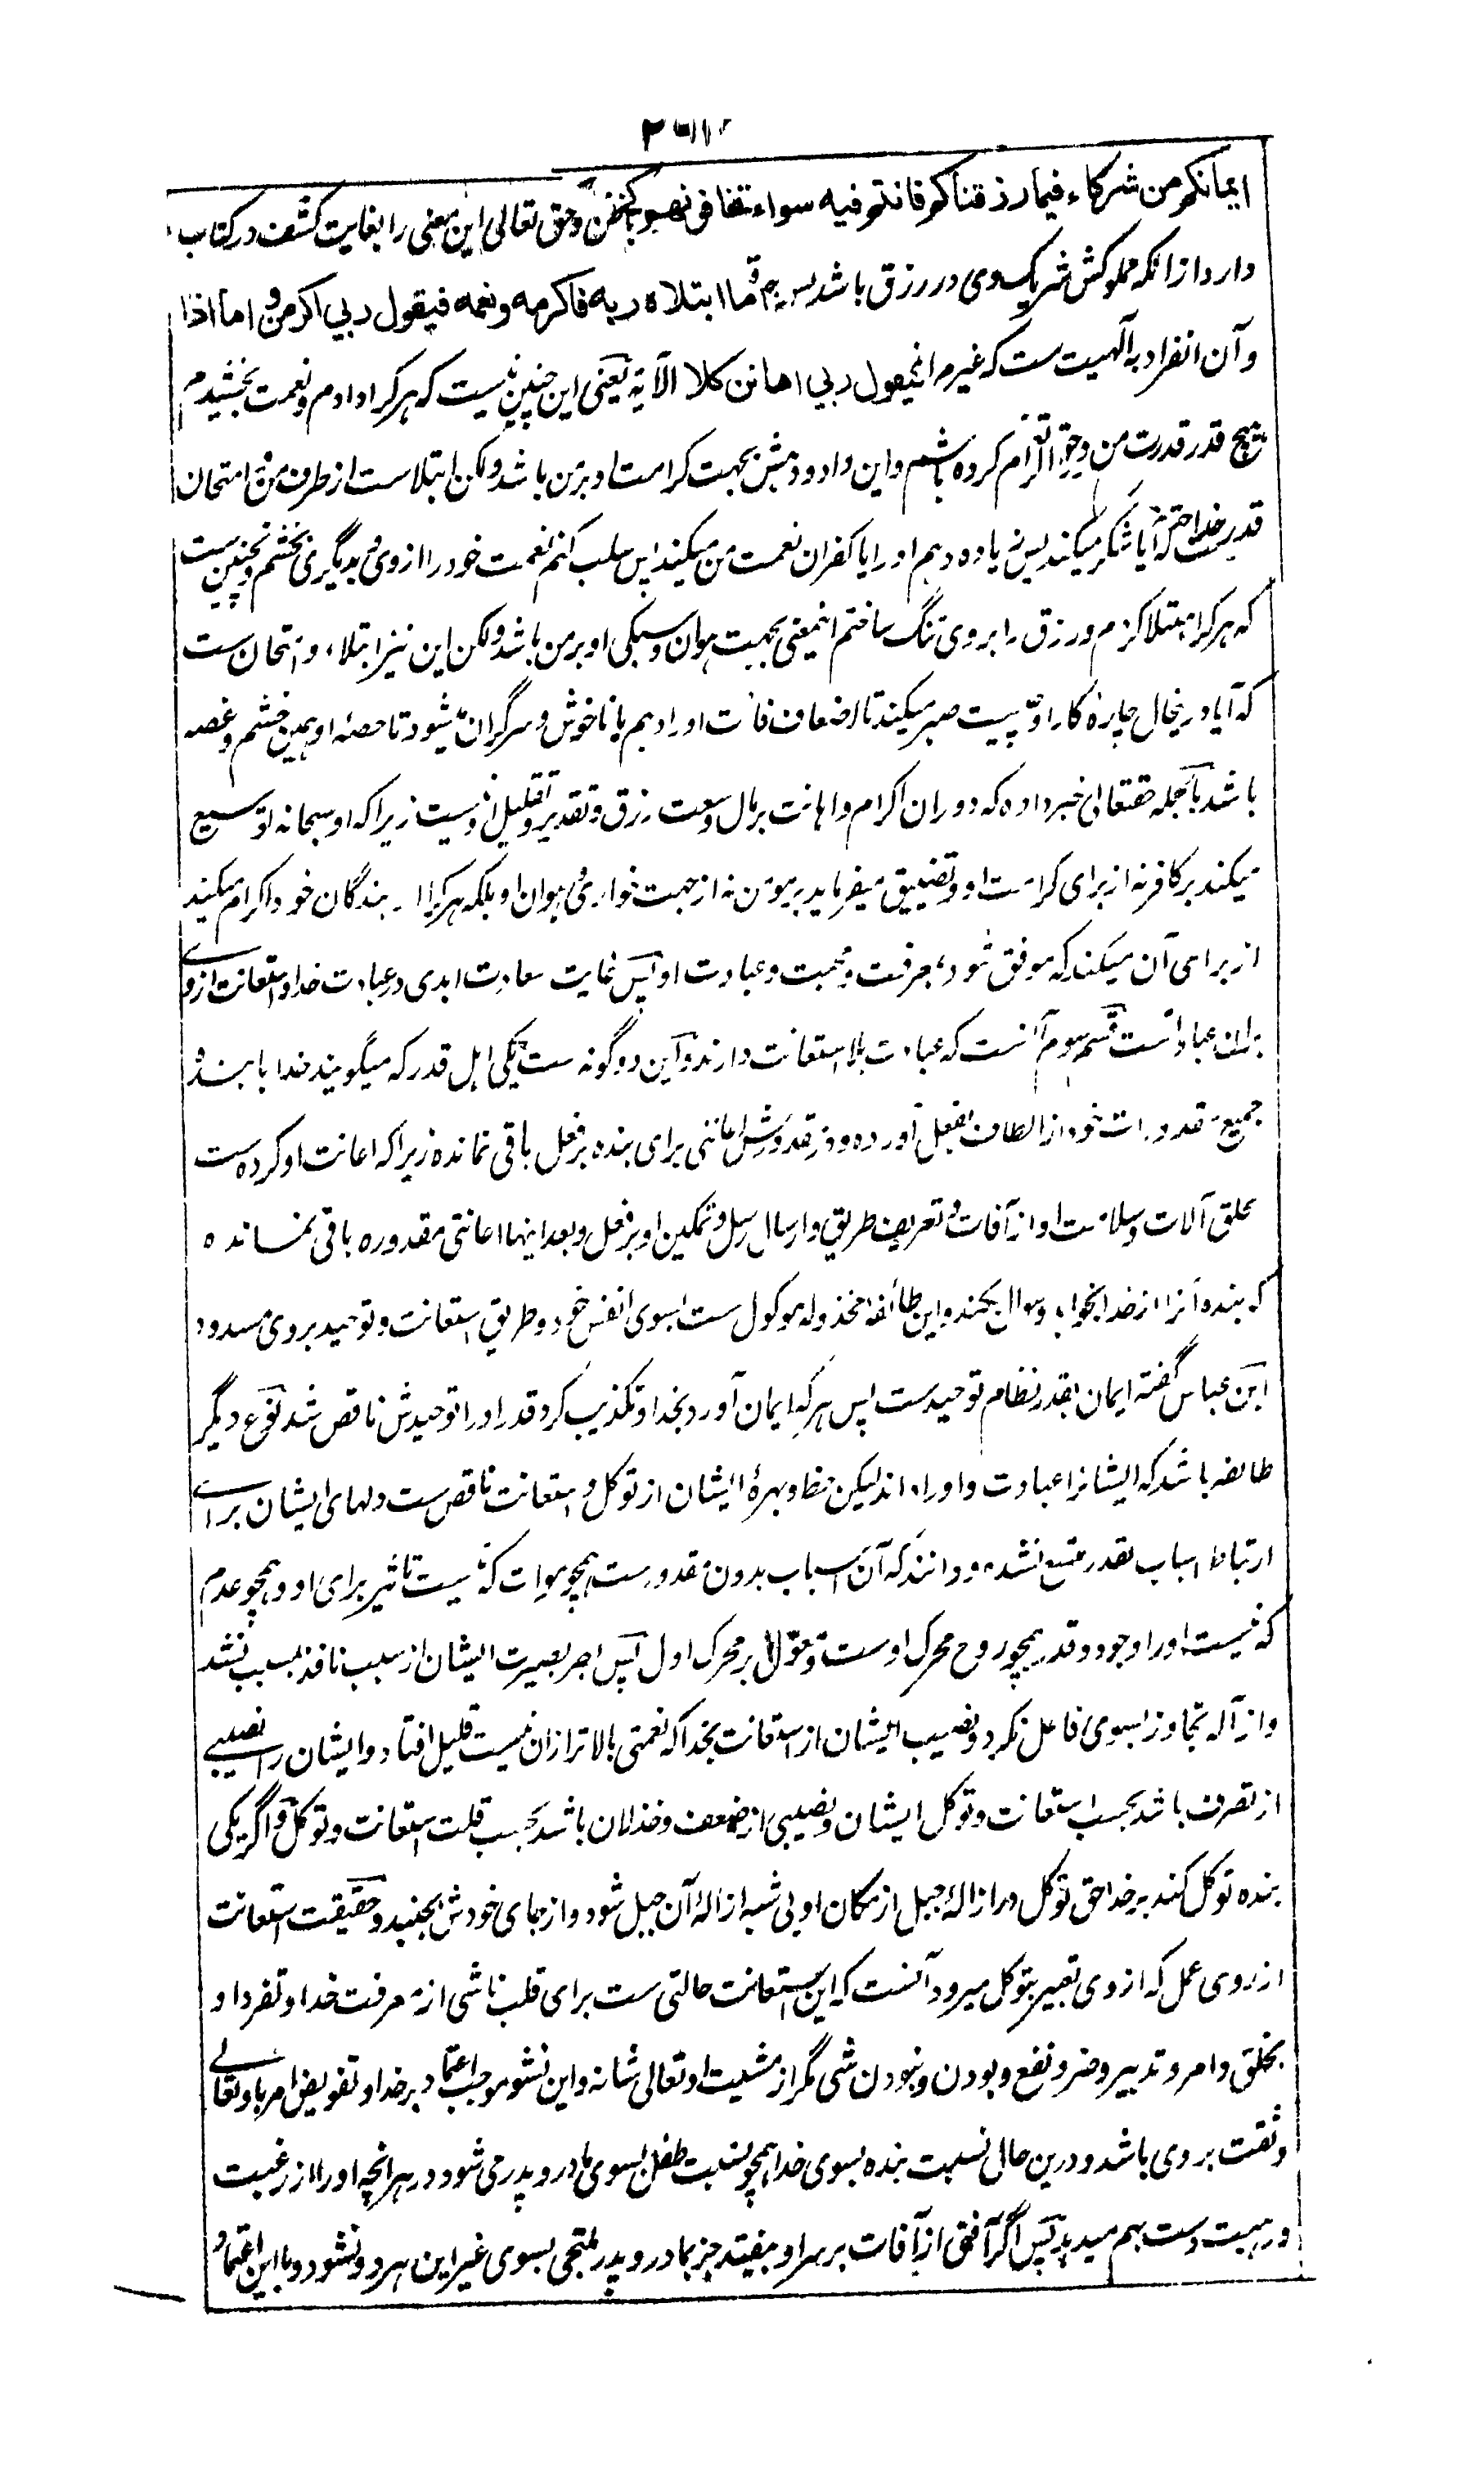 ایمانکم من شرکاء فیما رزقناکم فانتم فیه سواء تخافونهم وحق تعالی این معنی را بغایت کشف در کتاب
دارد ازانکه مملوکش شریک وی در رزق باشد پس فاما ابتلاه ربه فاکرمه ونعمه فیقول ربی اکرمن و اما اذا
و آن انفراد به الهیت ست که غیر مرا فیقول ربی اهانن کلا الآیة یعنی این چنین نیست که هر کرا دادم و نعمت بخشیدم
هیچ قدر قدرت من وحق اکرام کرده باشم و این داد و دهش بجهت کرامت او بر من باشد ولکن ابتلاست از طرف من و امتحان
قدر خدا حق که آیا شکر میکند پس زیاده دهم او را یا کفران نعمت من میکند پس سلب کنم نعمت خود را از وی و بدیگری بخشم و چنین ست
که هر کرا مبتلا کردم و رزق را بر وی تنگ ساختم اینمعنی بجهت هوان و سبکی او بر من باشد ولکن این نیز ابتلاء و امتحان ست
که آیا درینحال چارۀ کار او چیست صبر میکند تا اضعاف فائت او را دهم یا ناخوش و سرگران میشود تا حصۀ او همین خشم و غصه
باشد بالجمله حقتعالی خبر داده که دوران اکرام و اهانت بر مال و سعت رزق و تقدیر و تقلیل او نیست زیرا که او سبحانه توسیع
میکند بر کافر نه از برای کرامت او و تضییق میفرماید بر مومن نه از جهت خواری و هوان او بلکه هر کرا از بندگان خود اکرام میکند
از برای آن میکند که موفق شود بمعرفت و محبت و عبادت او پس غایت سعادت ابدی در عبادت خدا و استعانت از وی
بران عبادتست قسم سوم آنست که عبادت بلا استعانت دارند و این دو گونه ست یکی اهل قدر که میگویند خدا با بنده
جمیع مقدورات خود از الطاف بفعل آورده و در مقدورش اعانتی برای بنده بر فعل باقی نمانده زیرا که اعانت او کرده ست
بخلق آلات و سلامت او از آفات و تعریف طریق و ارسال رسل و تمکین او بر فعل و بعد اینها اعانتی مقدوره باقی نمانده
که بنده آنرا از خدا بخواهد و سوال بکند و این طائفه مخذوله موکول ست بسوی انفس خود و طریق استعانت و توحید بر وی مسدود
ابن عباس گفته ایمان بقدر نظام توحیدست پس هر که ایمان آورد بخدا و تکذیب کرد قدر او را توحیدش ناقص شد نوع دیگر
طائفه باشد که ایشانرا عبادت و اوراد اند لیکن حظ و بهرۀ ایشان از توکل و استعانت ناقص ست دلهای ایشان برای
ارتباط اسباب بقدر متسع نشده و دانند که آن اسباب بدون مقدورست همچو موات که نیست تاثیر برای او و همچو عدم
که نیست او را وجود و قدر همچو روح محرک اوست و معول بر محرک اول پس بصیرت ایشان از سبب نافذ بمسبب نشد
و از آله تجاوز بسوی فاعل نکرد و نصیب ایشان از استعانت بخدا که نعمتی بالاتر ازان نیست قلیل افتاد و ایشان را نصیبی
از تصرف باشد بحسب استعانت و توکل ایشان و نصیبی از ضعف و خذلان باشد بحسب قلت استعانت و توکل و اگر یکی
بنده توکل کند بر خدا حق توکل در ازالۀ جبل از مکان او بی شبه ازالۀ آن جبل شود و از جای خودش بجنبد و حقیقت استعانت
از روی عمل که از وی تعبیر بتوکل میرود آنست که این استعانت حالتی ست برای قلب ناشی از معرفت خدا و تفرد او
بخلق و امر و تدبیر و ضر و نفع و بودن و نبودن شی مگر از مشیت او تعالی شانه و این نشو موجب اعتماد بر خدا و تفویض امر باو تعالی
و ثقت بر وی باشد و درین حال نسبت بنده بسوی خدا همچو نسبت طفل بسوی مادر و پدر می شود در هر انچه او را از رغبت
و رهبت دست بهم میدهد پس اگر آفتی از آفات بر سر او بیفتد جز بمادر و پدر ملتجی بسوی غیر این هر دو نشود و با این اعتماد